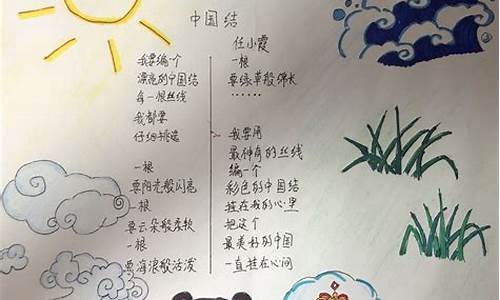 中国结
任小霞
我要编一个
漂亮的中国结
每一根丝线
我都要
仔细挑选
一根
要阳光般闪亮
一根
要云朵般柔软
一根
要海浪般活泼
一根
要绿草般绵长
……
我要用
最神奇的丝线
编一个
彩色的中国结
挂在我的心里
把这个
最美好的中国
一直挂在心间